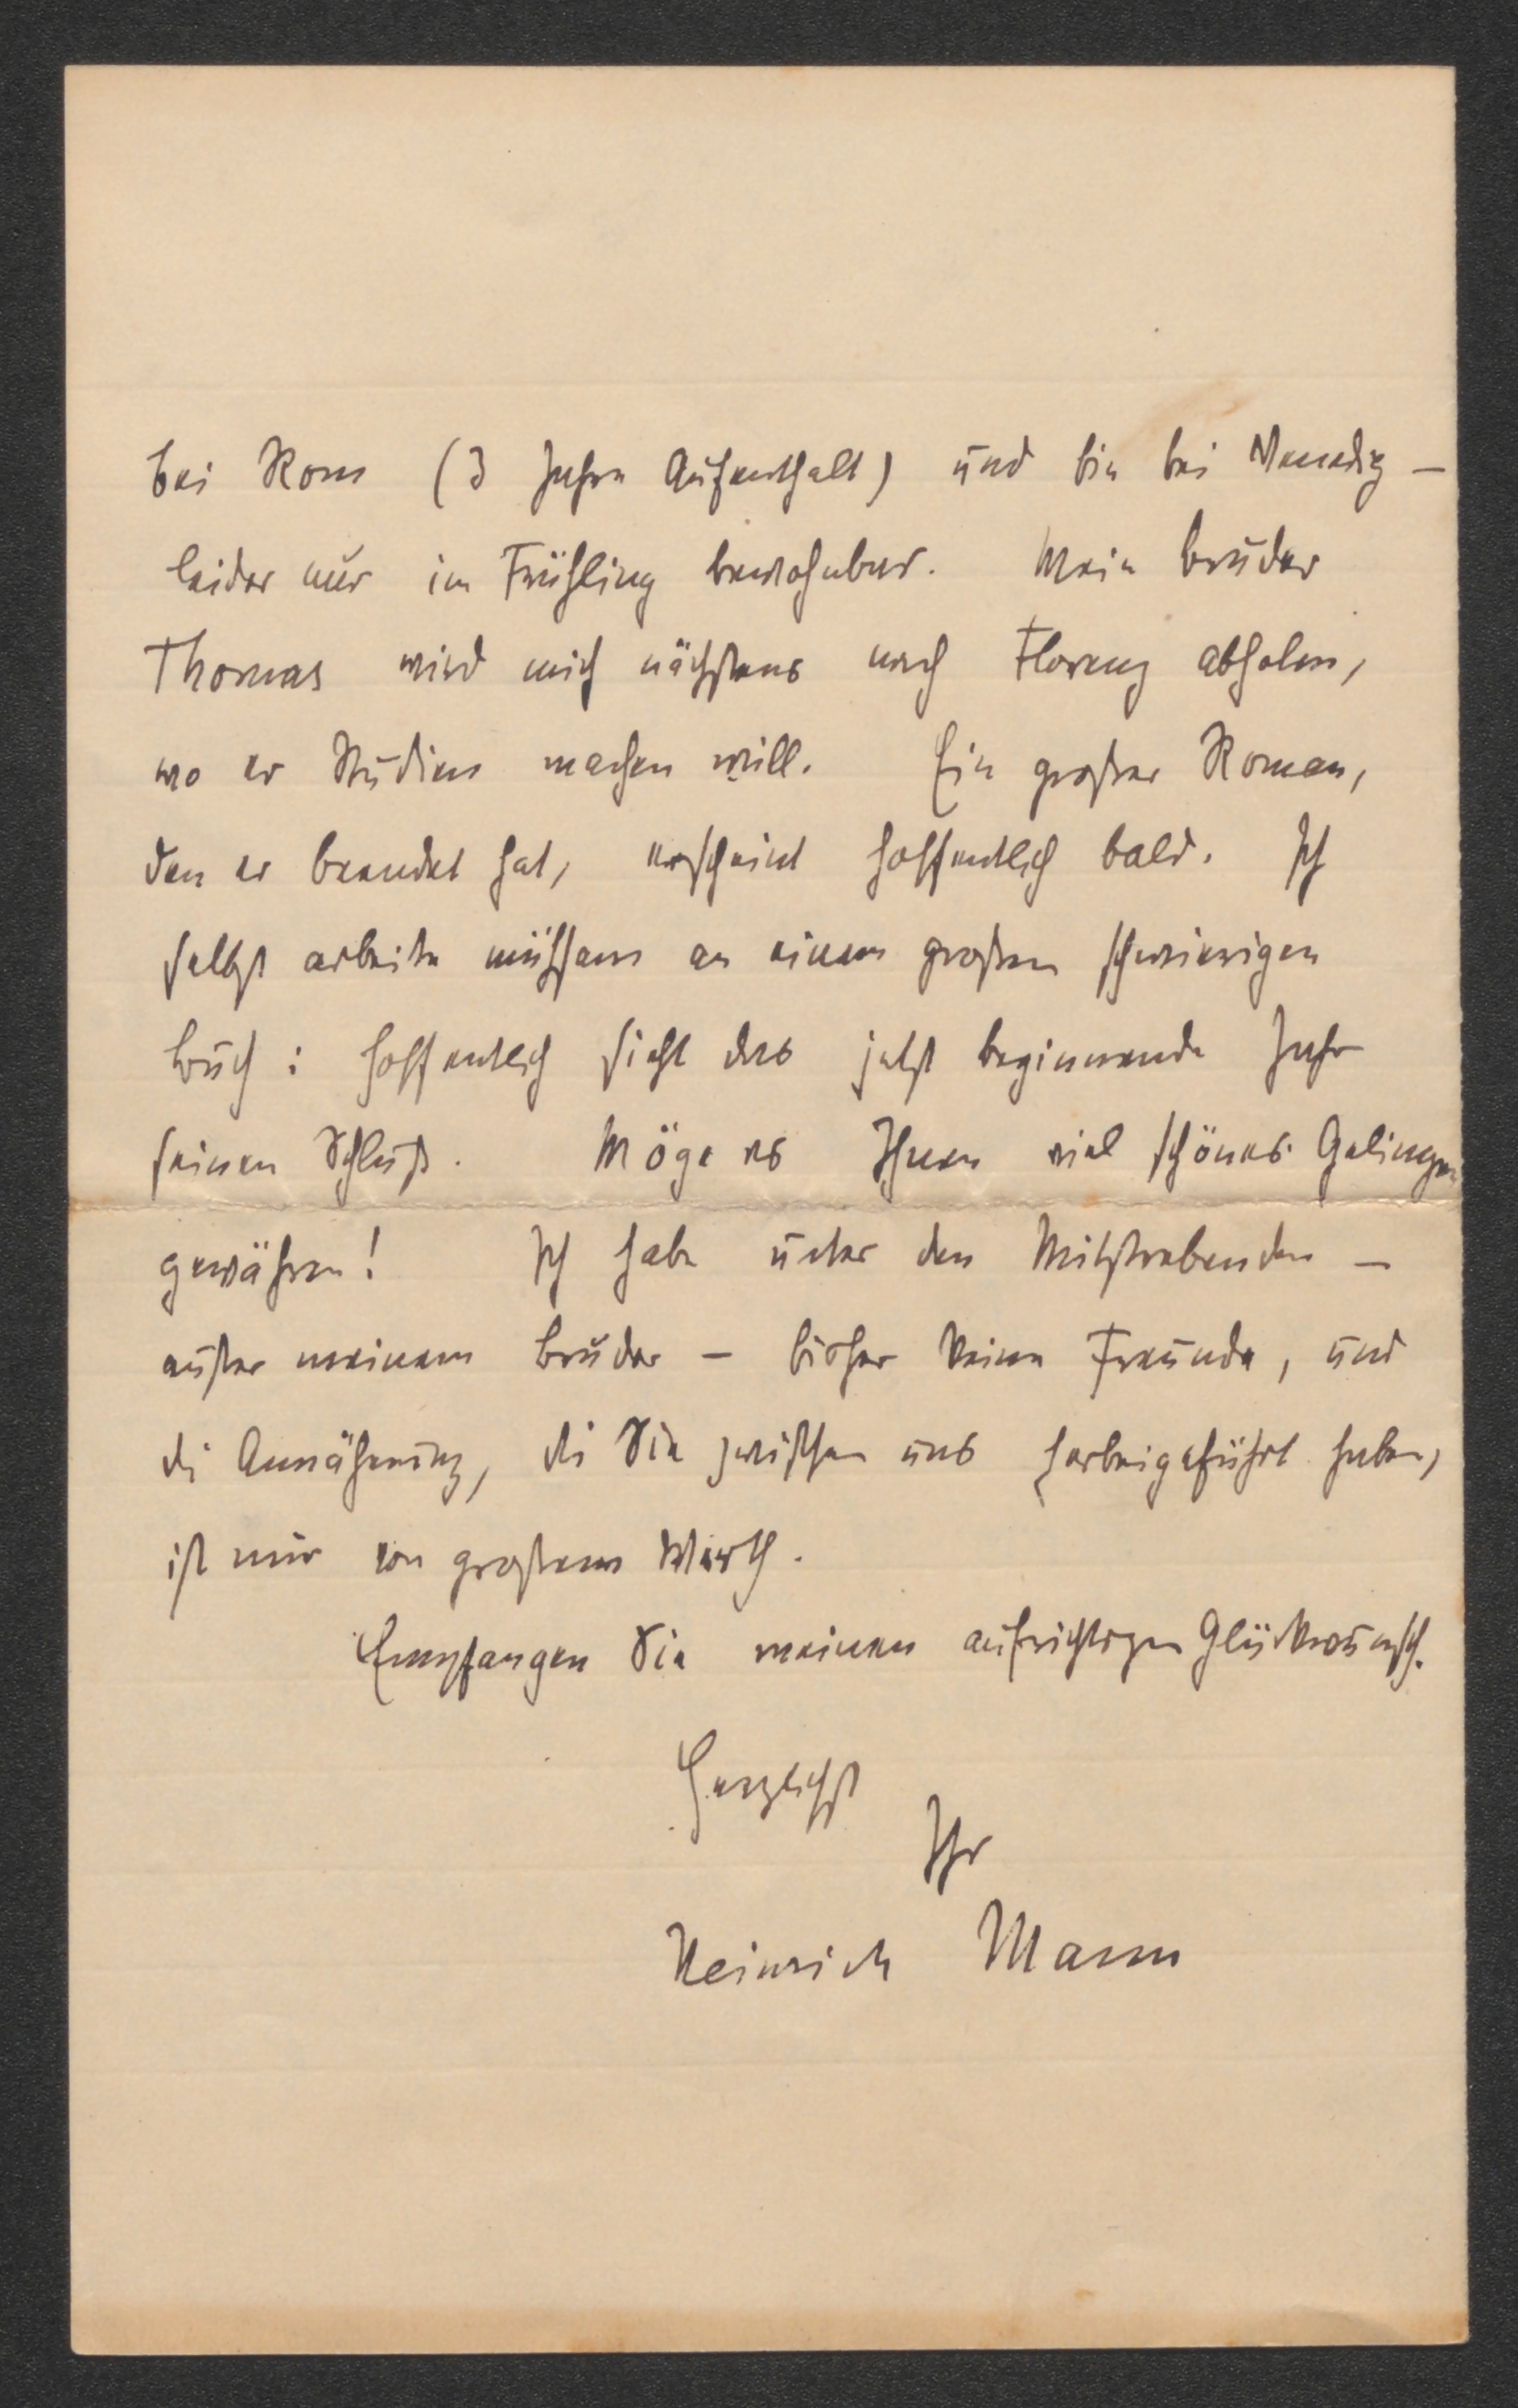 bei Rom (3 Jahre Aufenthalt) und bin bei Venedig –
leider nur im Frühling bewohnbar. Mein Bruder
Thomas wird mich nächstens nach Florenz abholen,
wo er Studien machen will. Ein großer Roman,
den er beendet hat, erscheint hoffentlich bald. Ich
selbst arbeite mühsam an einem großen schwierigen
Buch: hoffentlich sieht das jetzt beginnende Jahr
seinen Schluß. Möge es Ihnen viel schönes Gelingen
gewähren! Ich habe unter den Mitstrebenden –
außer meinem Bruder – bisher keine Freunde, und
die Annäherung, die Sie zwischen uns herbeigeführt haben,
ist mir von großem Werth.
Empfangen Sie meinen aufrichtigen Glückwunsch.
Herzlichst
Ihr
Heinrich Mann